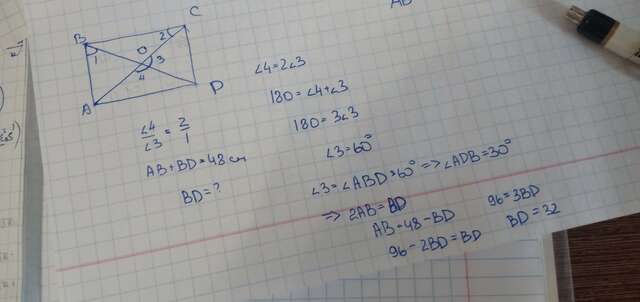 B
C
1
O
2
3
4
A
D
∠4/∠3 = 2/1
AB+BD=48 cm
BD=?
∠4=2∠3
180=∠4+∠3
180=3∠3
∠3=60°
∠3=∠ABD=60° ⇒ ∠ADB=30°
⇒ 2AB=BD
AB=48-BD
96-2BD=BD
96=3BD
BD=32